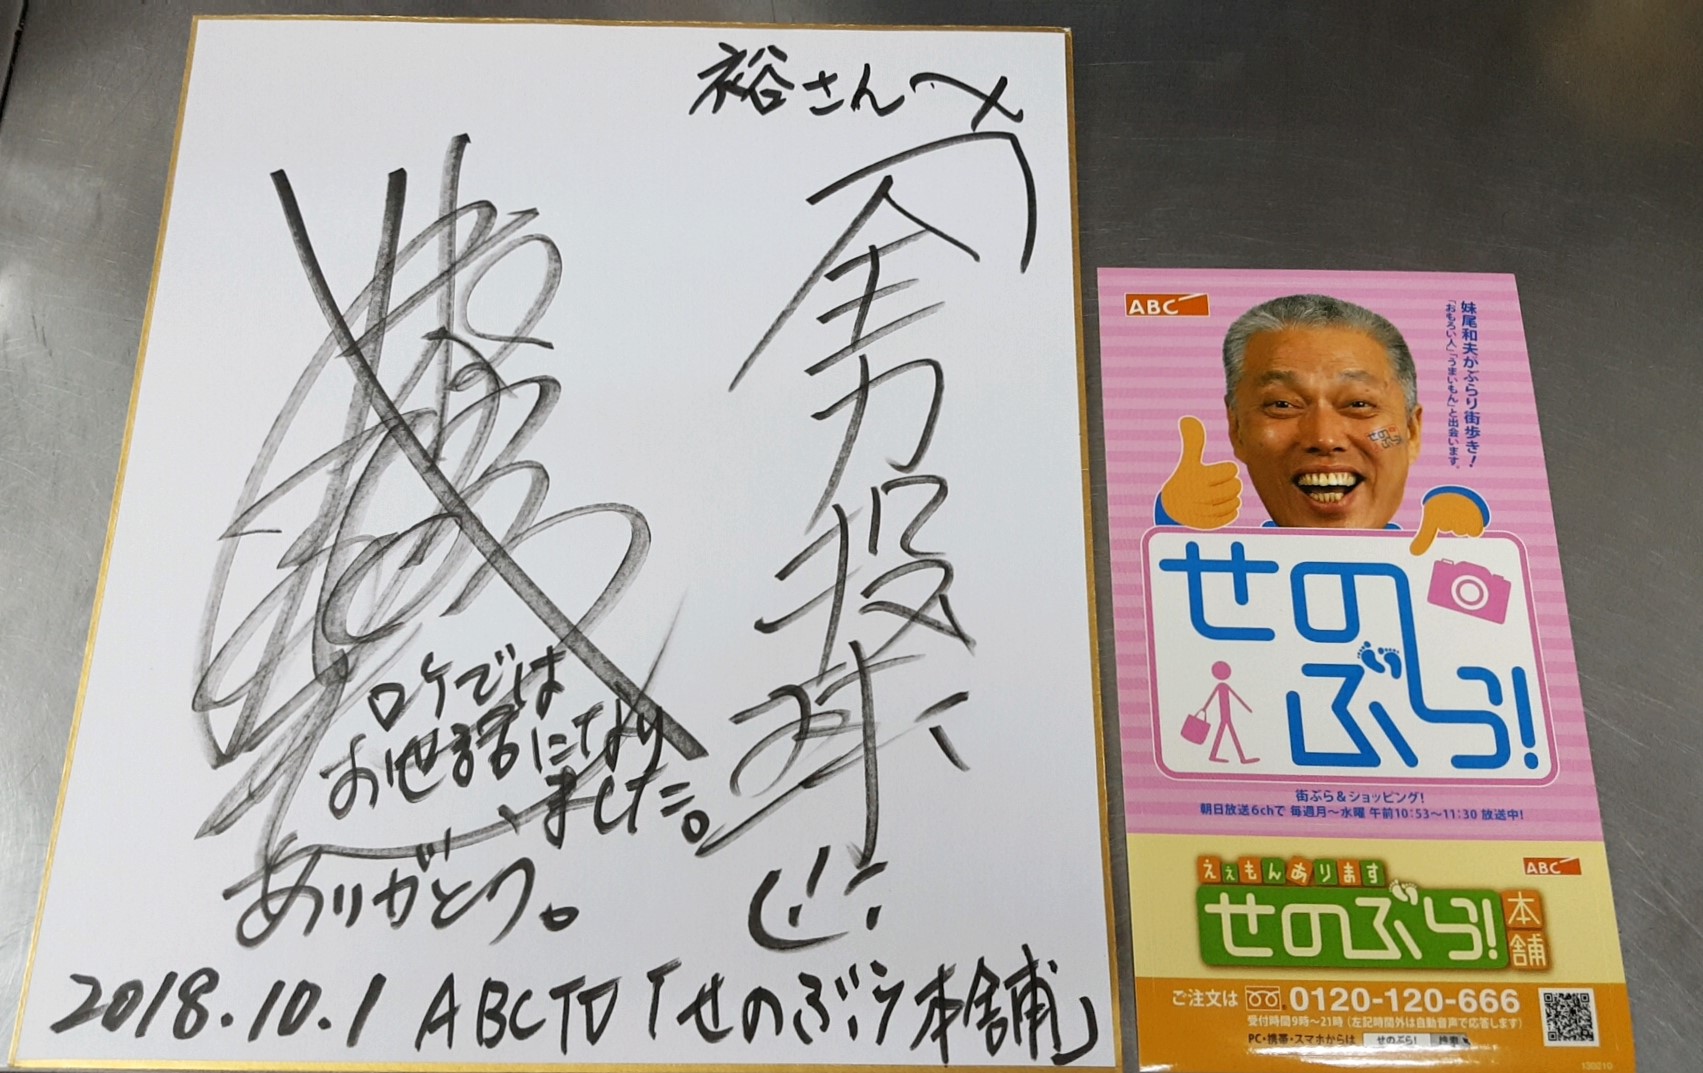 裕さんへ
全力投球
ロケでは
お世話になり
ました。
ありがとう。
2018.10.1 ABCTV「せのぶら本舗」
ABC
妹尾和夫がぶらり街歩き!
「おもろい人」「うまいもん」と出会います。
せのぶら!
せの
ぶら!
街ぶら&ショッピング!
朝日放送6chで 毎週月〜水曜 午前10:53〜11:30 放送中!
ええもんあります
ABC
せのぶら!本舗
ご注文は 0120-120-666
受付時間9時〜21時(左記時間外は自動音声で応答します)
PC・携帯・スマホからは せのぶら! 検索
130210